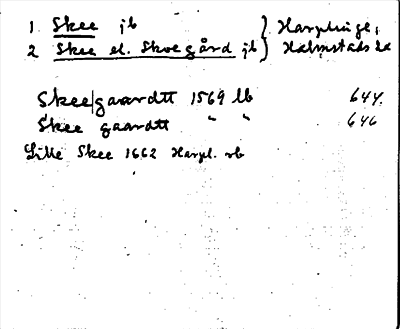 1. Skee jb } Harplinge,
2 Skee el. Skoegård jb } Halmstads hd
Skee|gaardtt 1569 lb 644.
Skee gaardtt " " 646
Lille Skee 1662 Harpl. rb